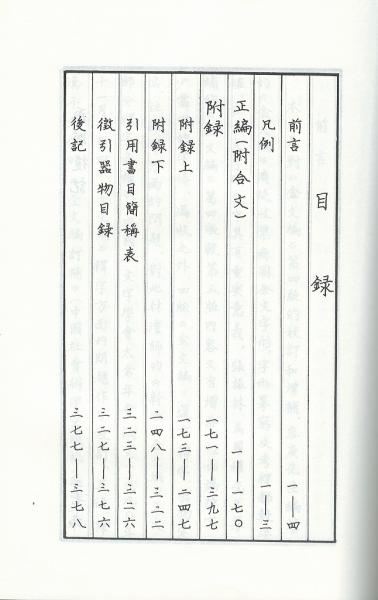 目錄
前言 一——四
凡例 一——三
正編(附合文) 一——一七〇
附録 一七一——三九七
附録上 一七三——二四七
附録下 二四八——三二二
引用書目簡稱表 三二三——三二六
徵引器物目録 三二七——三七六
後記 三七七——三七八